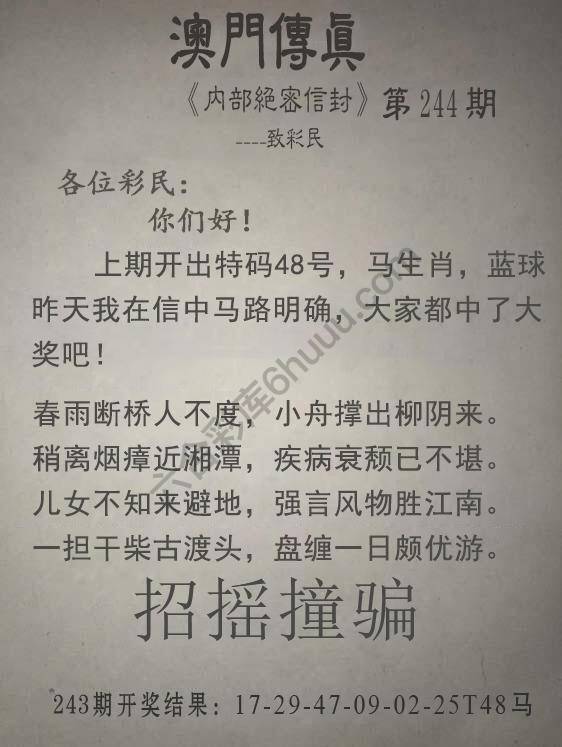 澳門傳真
《内部絕密信封》第244期
----致彩民
各位彩民：
你们好！
上期开出特码48号，马生肖，蓝球
昨天我在信中马路明确，大家都中了大
奖吧！
春雨断桥人不度，小舟撑出柳阴来。
稍离烟瘴近湘潭，疾病衰颓已不堪。
儿女不知来避地，强言风物胜江南。
一担干柴古渡头，盘缠一日颇优游。
招摇撞骗
243期开奖结果：17-29-47-09-02-25T48马
六合彩库6huuu.com